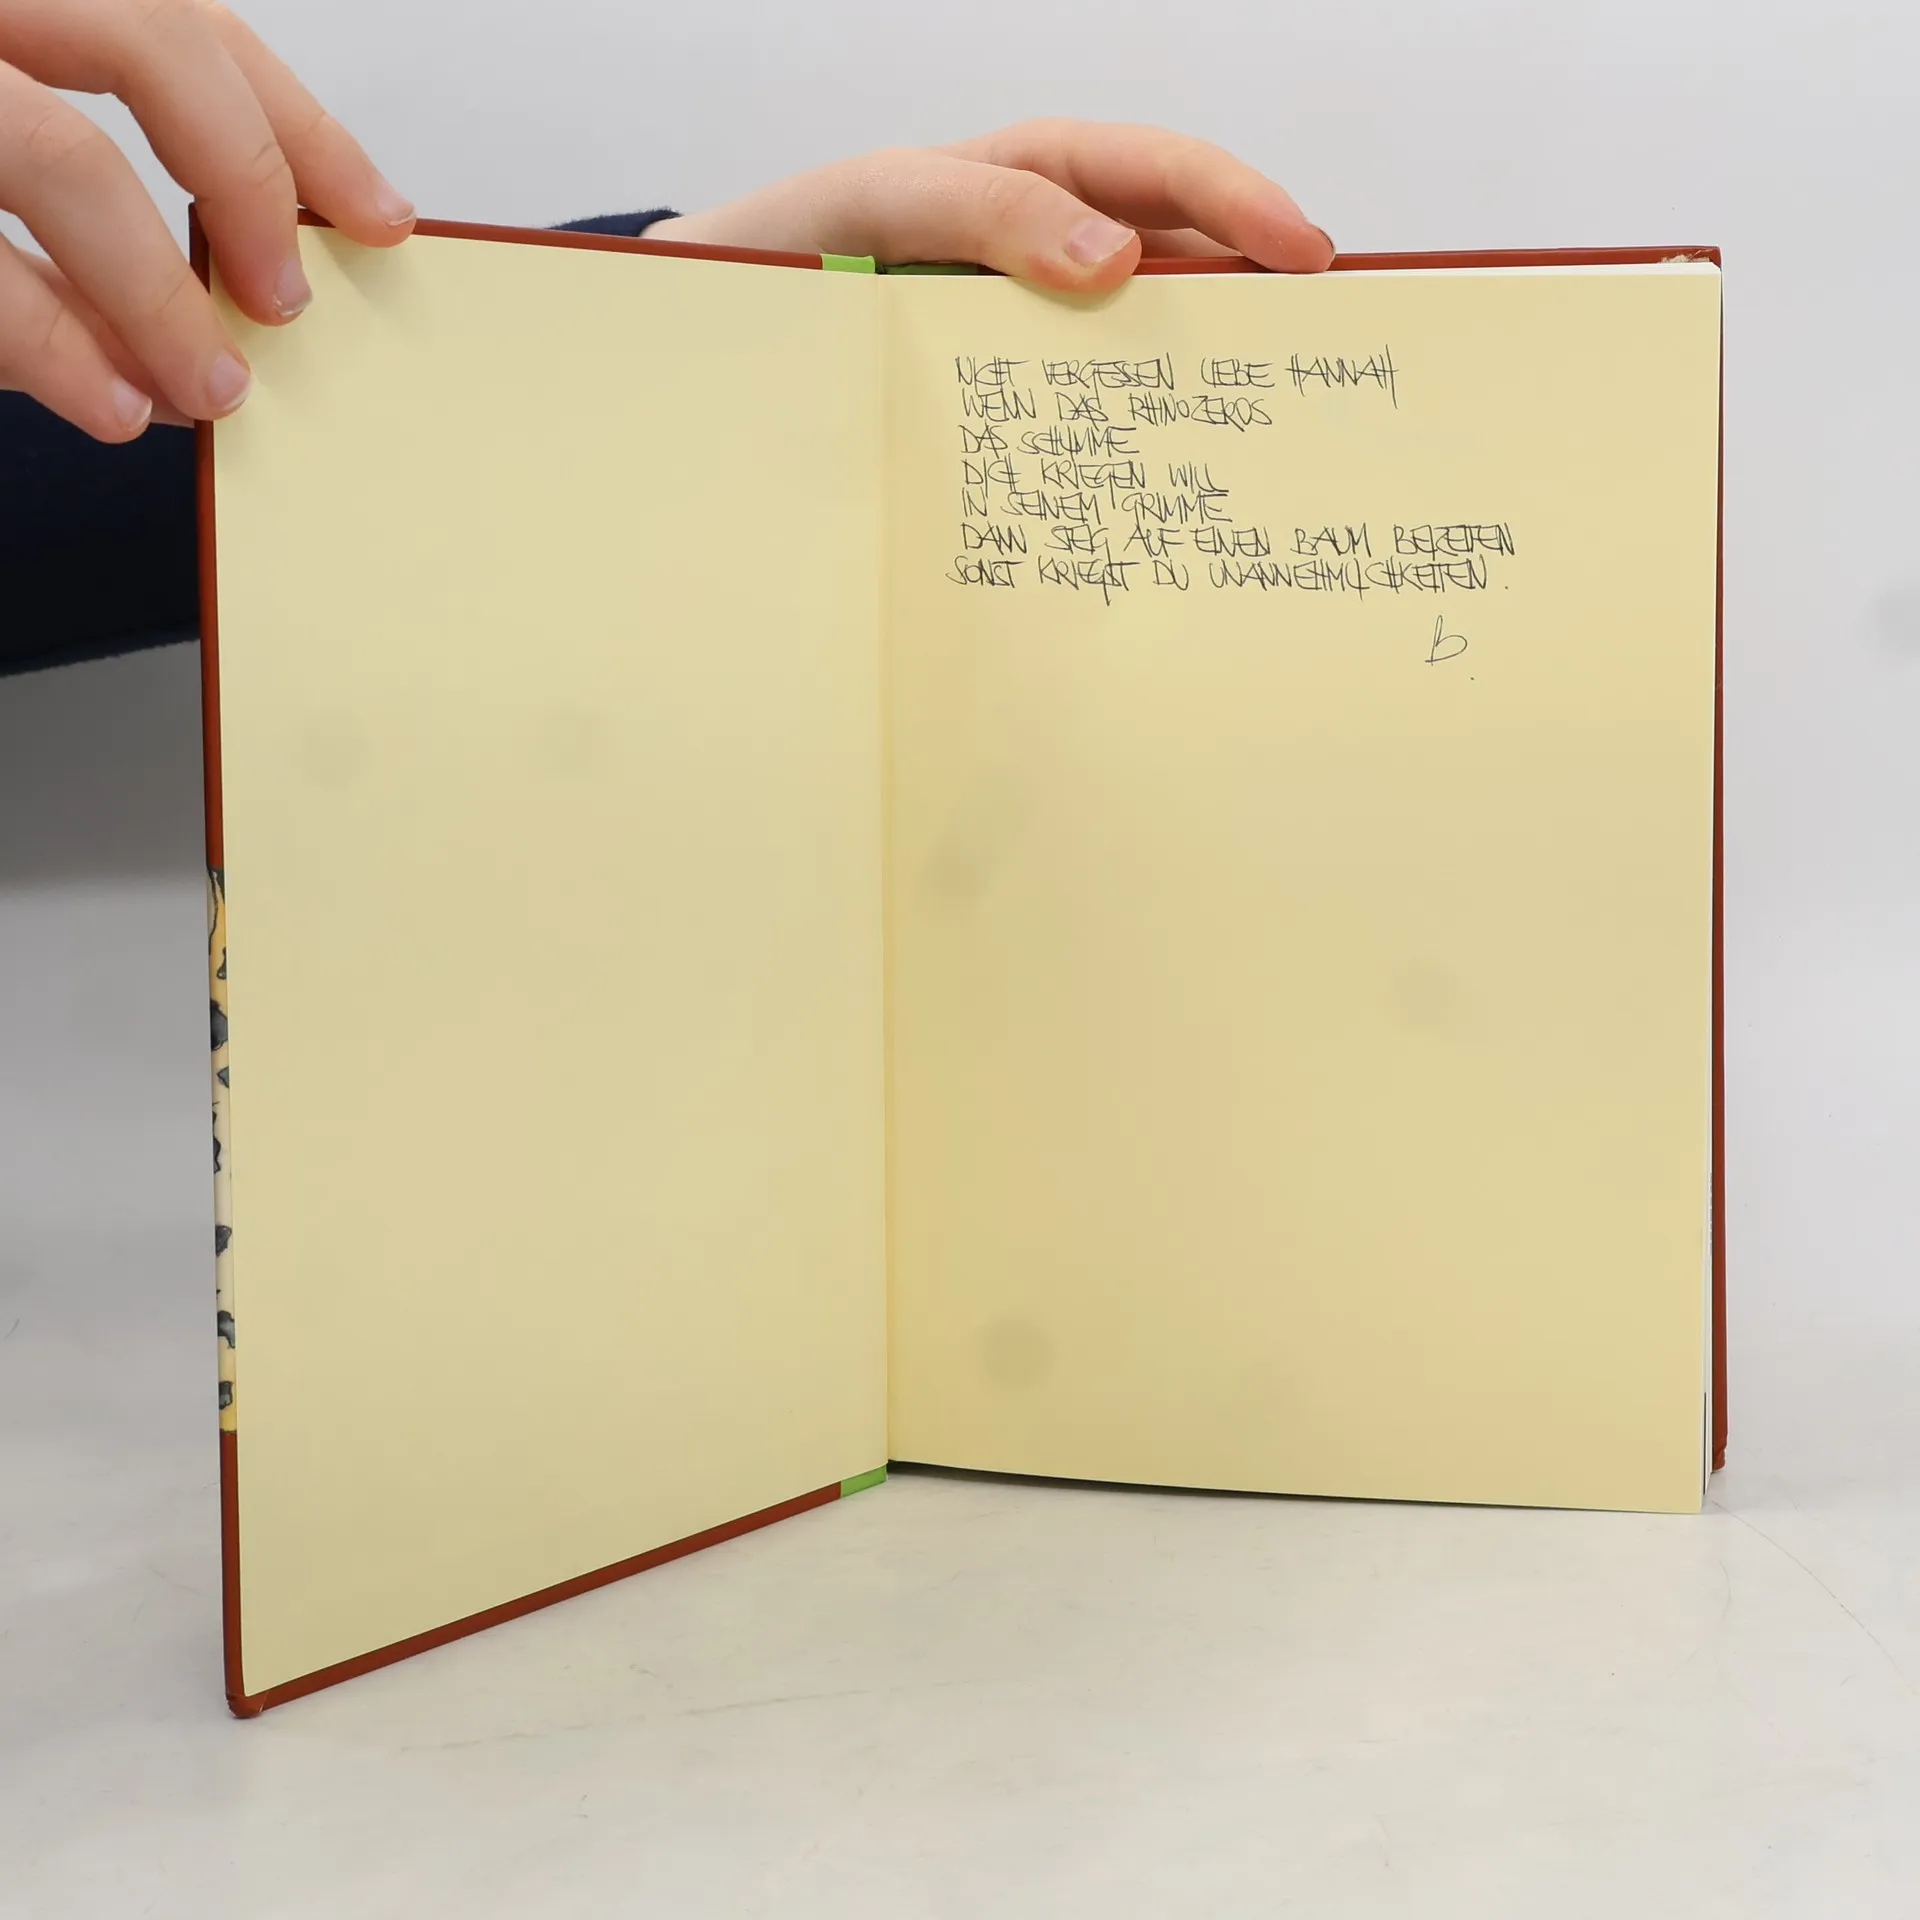 NICHT VERGESSEN LIEBE HANNAH
WENN DAS RHINOZEROS
DAS SCHLIMME
DICH KRIEGEN WILL
IN SEINEM GRIMME
DANN STEIG AUF EINEN BAUM BEIZEITEN
SONST KRIEGST DU UNANNEHMLICHKEITEN.
B.